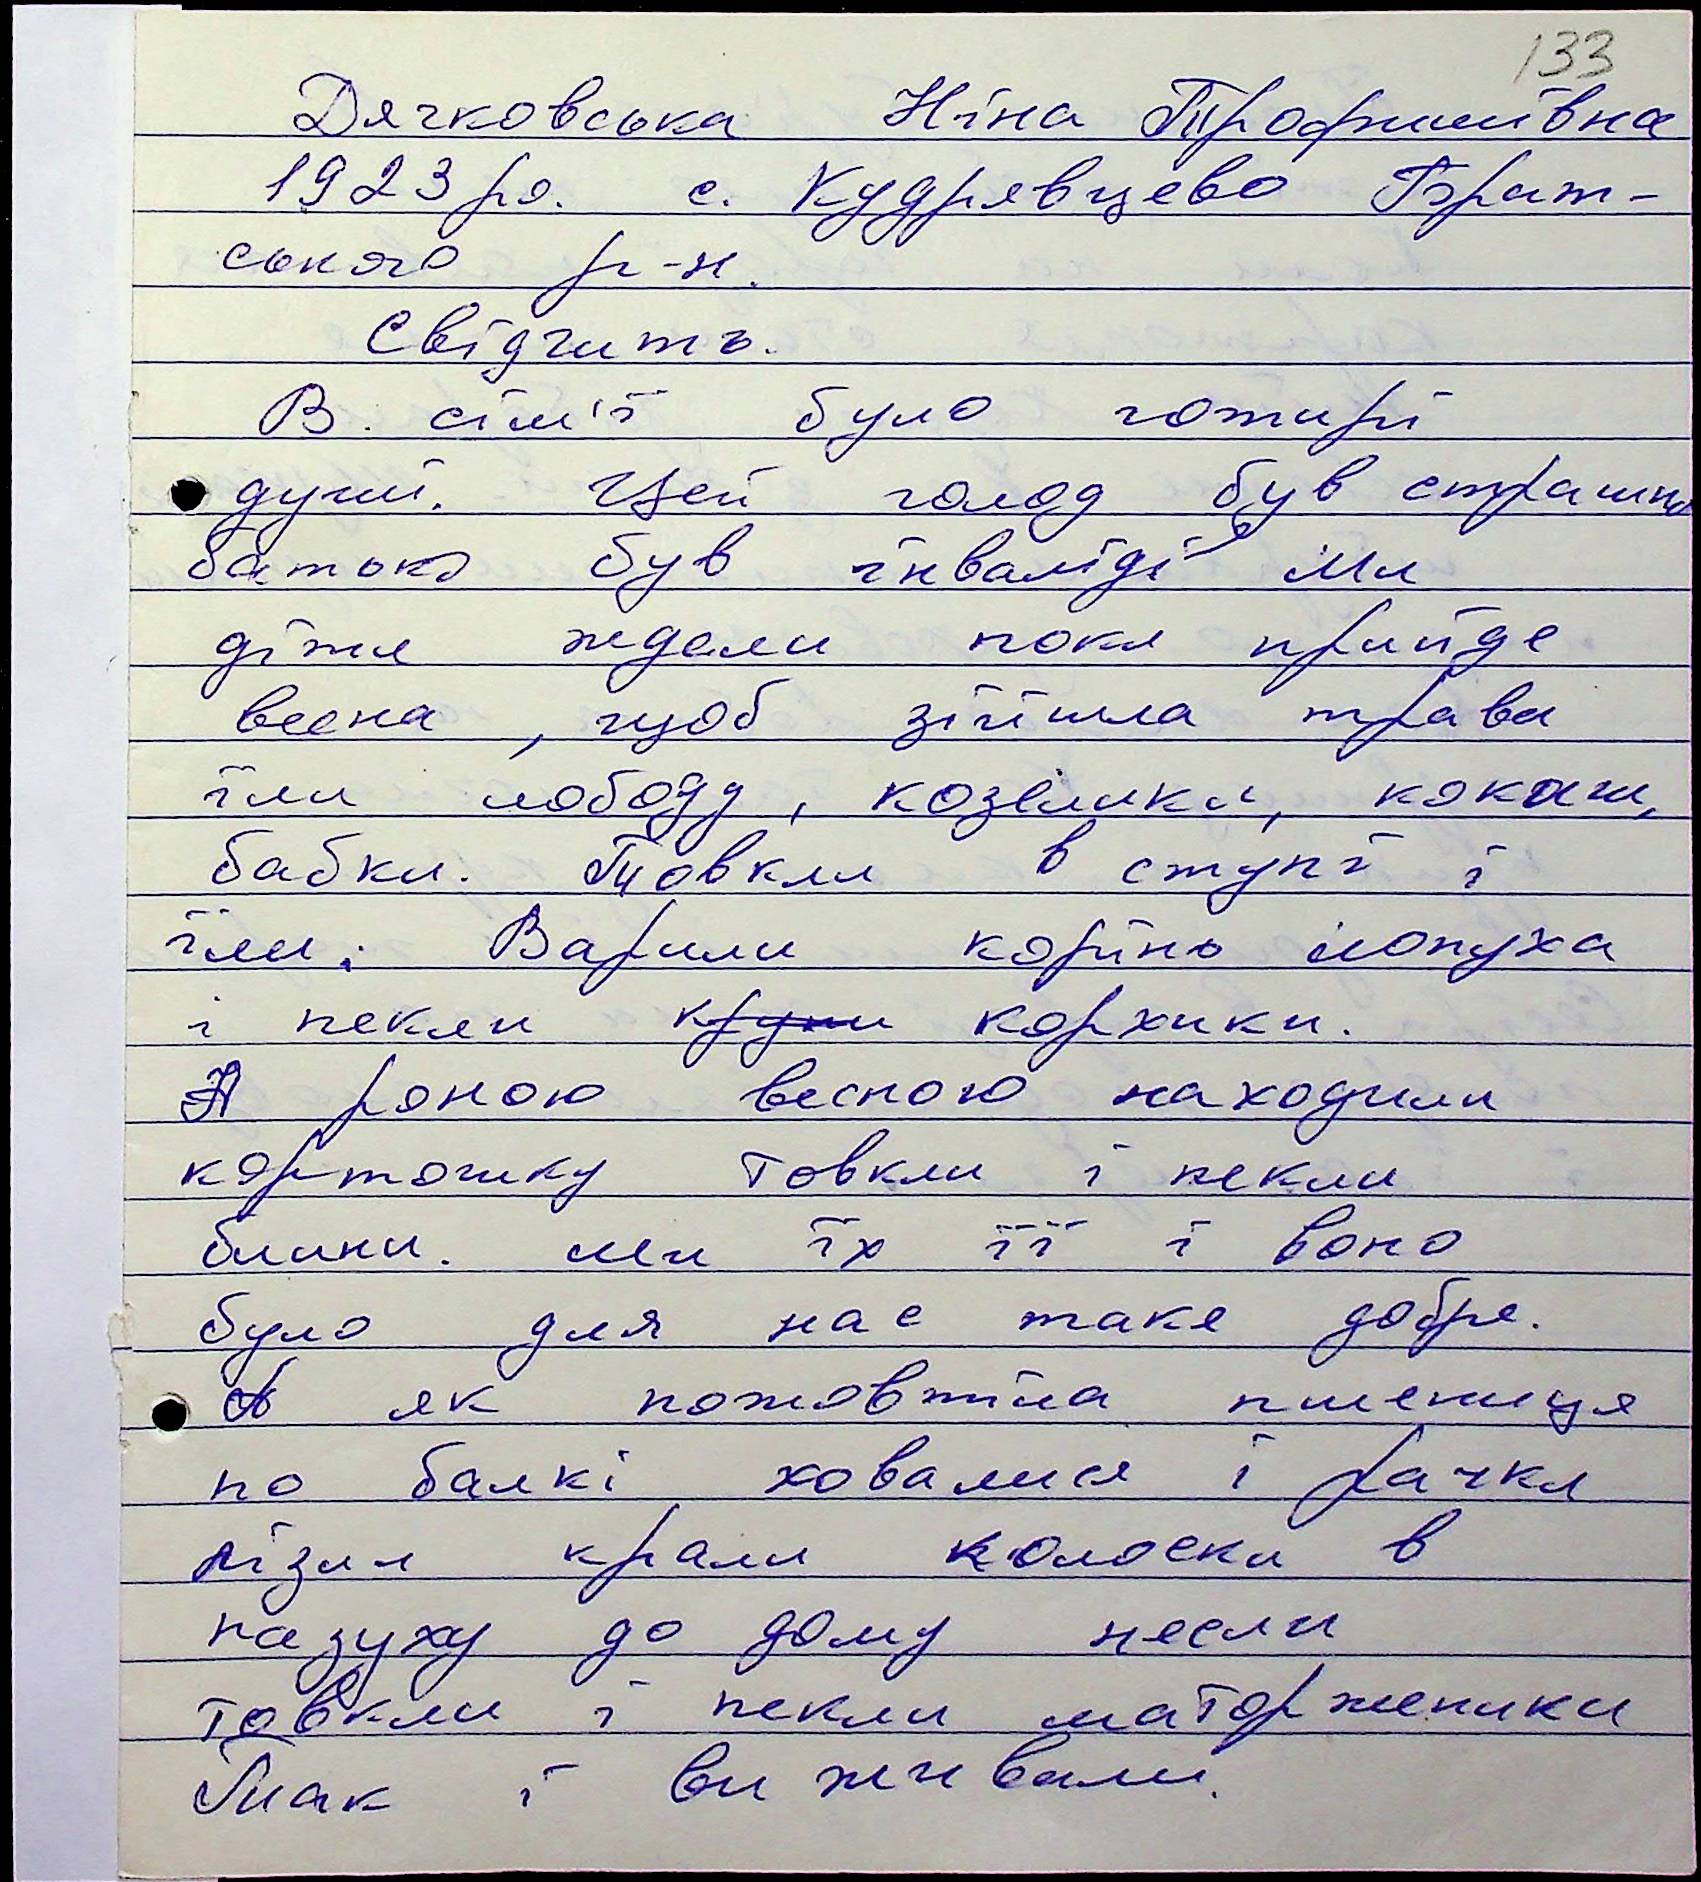 133
Дячковська Ніна Трофимівна
1923 рд. с. Кудрявцево Брат-
ського р-н.
Свідчить.
В. сім'ї було чотирі
душі. Цей голод був страшни
батько був інваліді Ми
діти ждали поки прийде
весна, щоб зійшла трава
їли лободу, козелики, какаш,
бабки. Товкли в ступі і
їли. Варили корінь лопуха
і пекли круни коржики.
А раною весною находили
картошку товкли і пекли
блини. ми їх її і воно
було для нас таке добре.
А як пожовтіла пшениця
по балкі ховалися і рачки
лізли крали колоски в
пазуху до дому несли
товкли і пекли маторженики
Так і виживали.